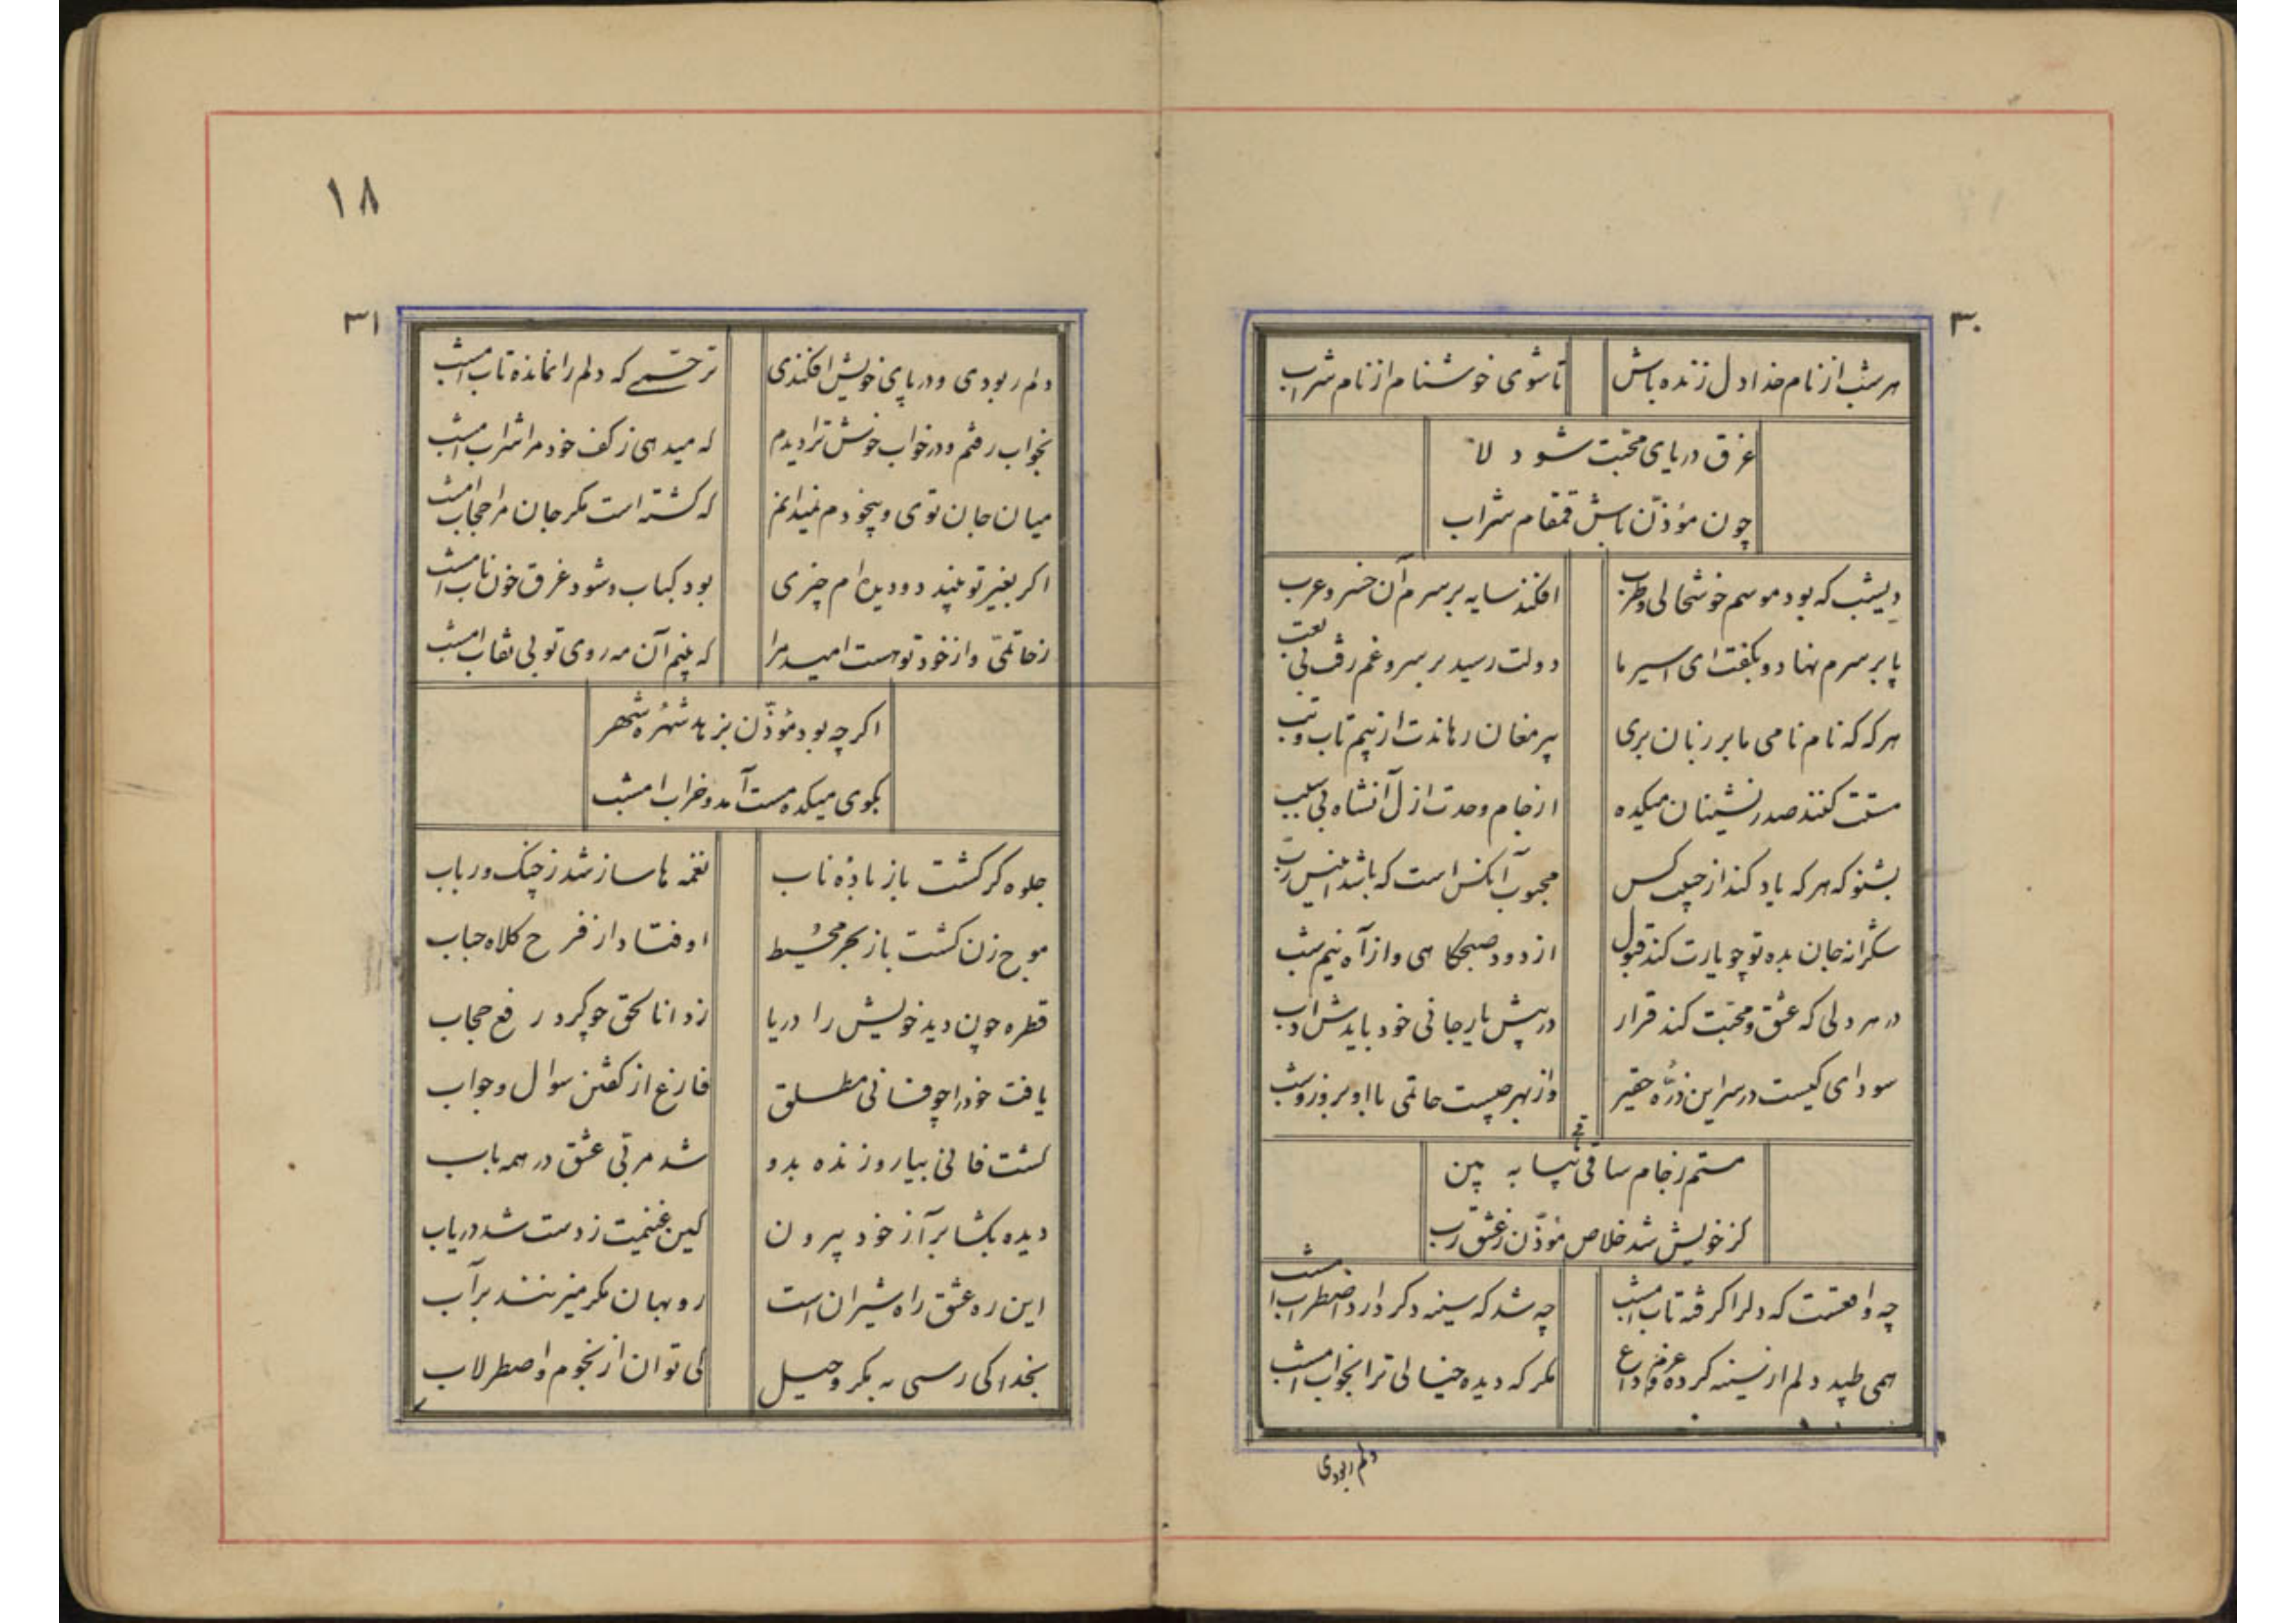 ۳۰
هر شب از نام خدا دل زنده باش
تا شوی خوشنام از نام شراب
غرق دریای محبت شو دلا
چون مؤذّن باش قمقام شراب
دیشب که بود موسم خوشحالی و طرب
افکند سایه بر سرم آن خسرو عرب
پا بر سرم نهاد و بگفت ای اسیر ما
دولت رسید بر سر و غم رفت بی تعب
هرکه که نام نامی ما بر زبان بری
پیر مغان رهاندت از نیم تاب و تب
مستت کنند صدرنشینان میکده
از جام وحدت ازل آنشاه بی سبب
بشنو که هرکه یاد کند از حبیب کس
محبوب آنکس است که باشد انیس رب
شکرانه جان بده تو چو یارت کند قبول
از دود صبحکاهی و از آه نیم شب
در هر دلی که عشق و محبت کند قرار
در پیش یار جانی خود بایدش ادب
سودای کیست در سر این ذرّه حقیر
وز بهر چیست حاتمی با او بروز و شب
مستم ز جام ساقی باقی بیا به بین
کز خویش شد خلاص مؤذّن ز عشق رب
چه واقعست که دلرا گرفته تاب امشب
چه شد که سینه دکر دارد اضطراب امشب
همی طپید دلم از سینه کرده عزم وداع
مکر که دیده خیالی ترا بخواب امشب
دلم ربودی
۱۸
۳۱
دلم ربودی و در پای خویش افکندی
ترحّمی که دلم را نمانده تاب امشب
بخواب رفتم و در خواب خوش ترا دیدم
که میدهی ز کف خود مرا شراب امشب
میان جان توی و بیخودم نمیدانم
که کشته است مکر جان مرا حجاب امشب
اکر بغیر تو بیند دو دیده ام چیزی
بود کباب و شود غرق خون ناب امشب
ز حاتمّی و از خود تو هست امید مرا
که بینم آن مه روی تو بی نقاب امشب
اکرچه بود مؤذّن بزهد شهرهٔ شهر
بکوی میکده مست آمد و خراب امشب
جلوه کر کشت باز بادهٔ ناب
نغمه ها ساز شد ز چنک و رباب
موج زن کشت باز بحر محیط
اوفتاد از فرح کلاه حباب
قطره چون دید خویش را دریا
زد انا لحق چو کرد رفع حجاب
یافت خود را چو فانی مطلق
فارغ از کفتن سوال و جواب
کشت فانی بیار و زنده بدو
شد مربّی عشق در همه باب
دیده بکشا برآ ز خود بیرون
کین غنیمت ز دست شد دریاب
این ره عشق راه شیران است
روبهان مکر میزنند بر آب
بخدا کی رسی به مکر و حیل
کی توان از نجوم و اصطرلاب